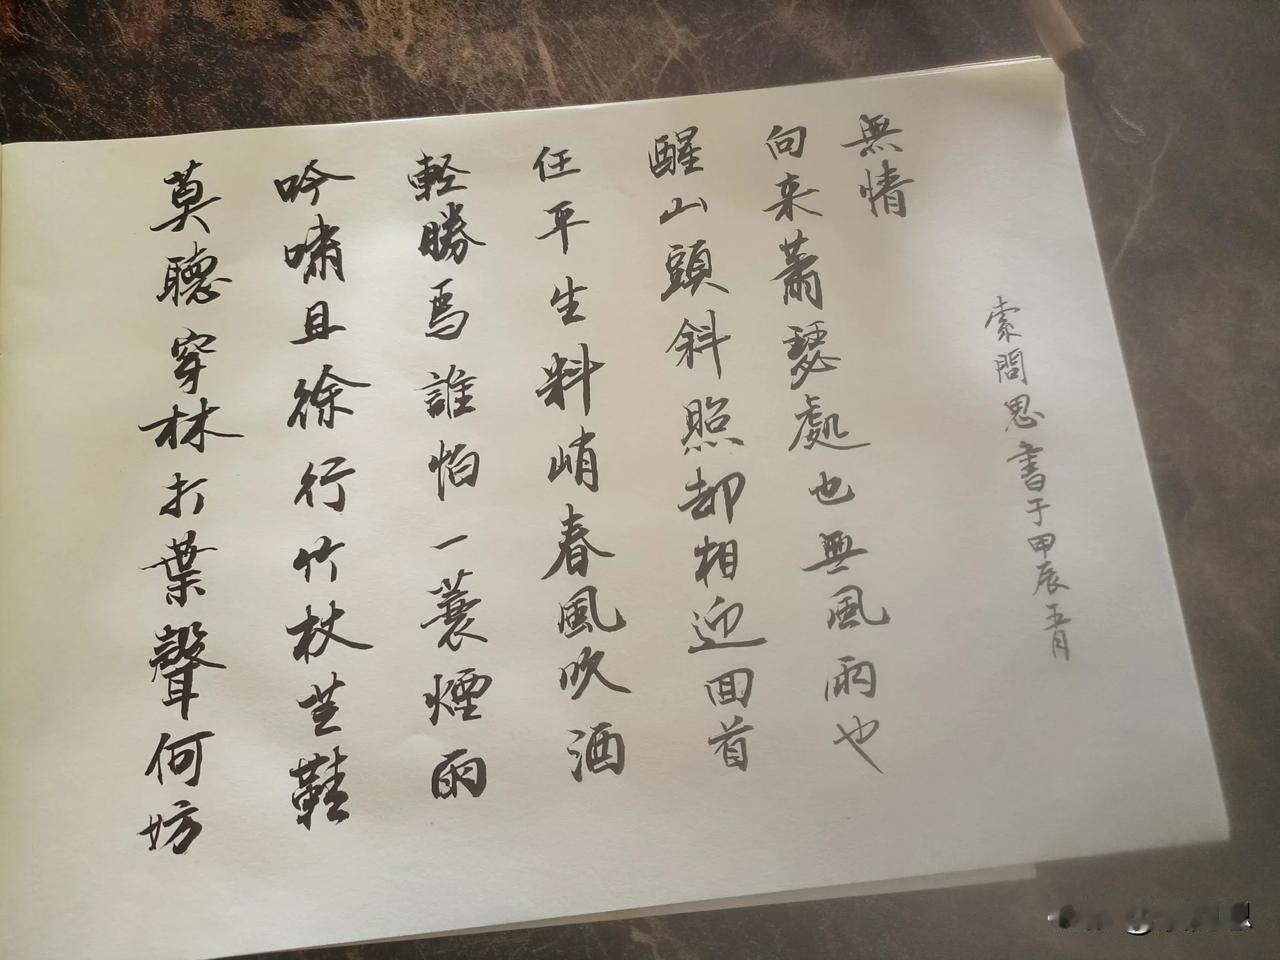 莫聽穿林打葉聲何妨
吟嘯且徐行竹杖芒鞋
軽勝馬誰怕一蓑煙雨
任平生料峭春風吹酒
醒山頭斜照却相迎回首
向来蕭瑟處也無風雨也
無情
索問思書于甲辰五月